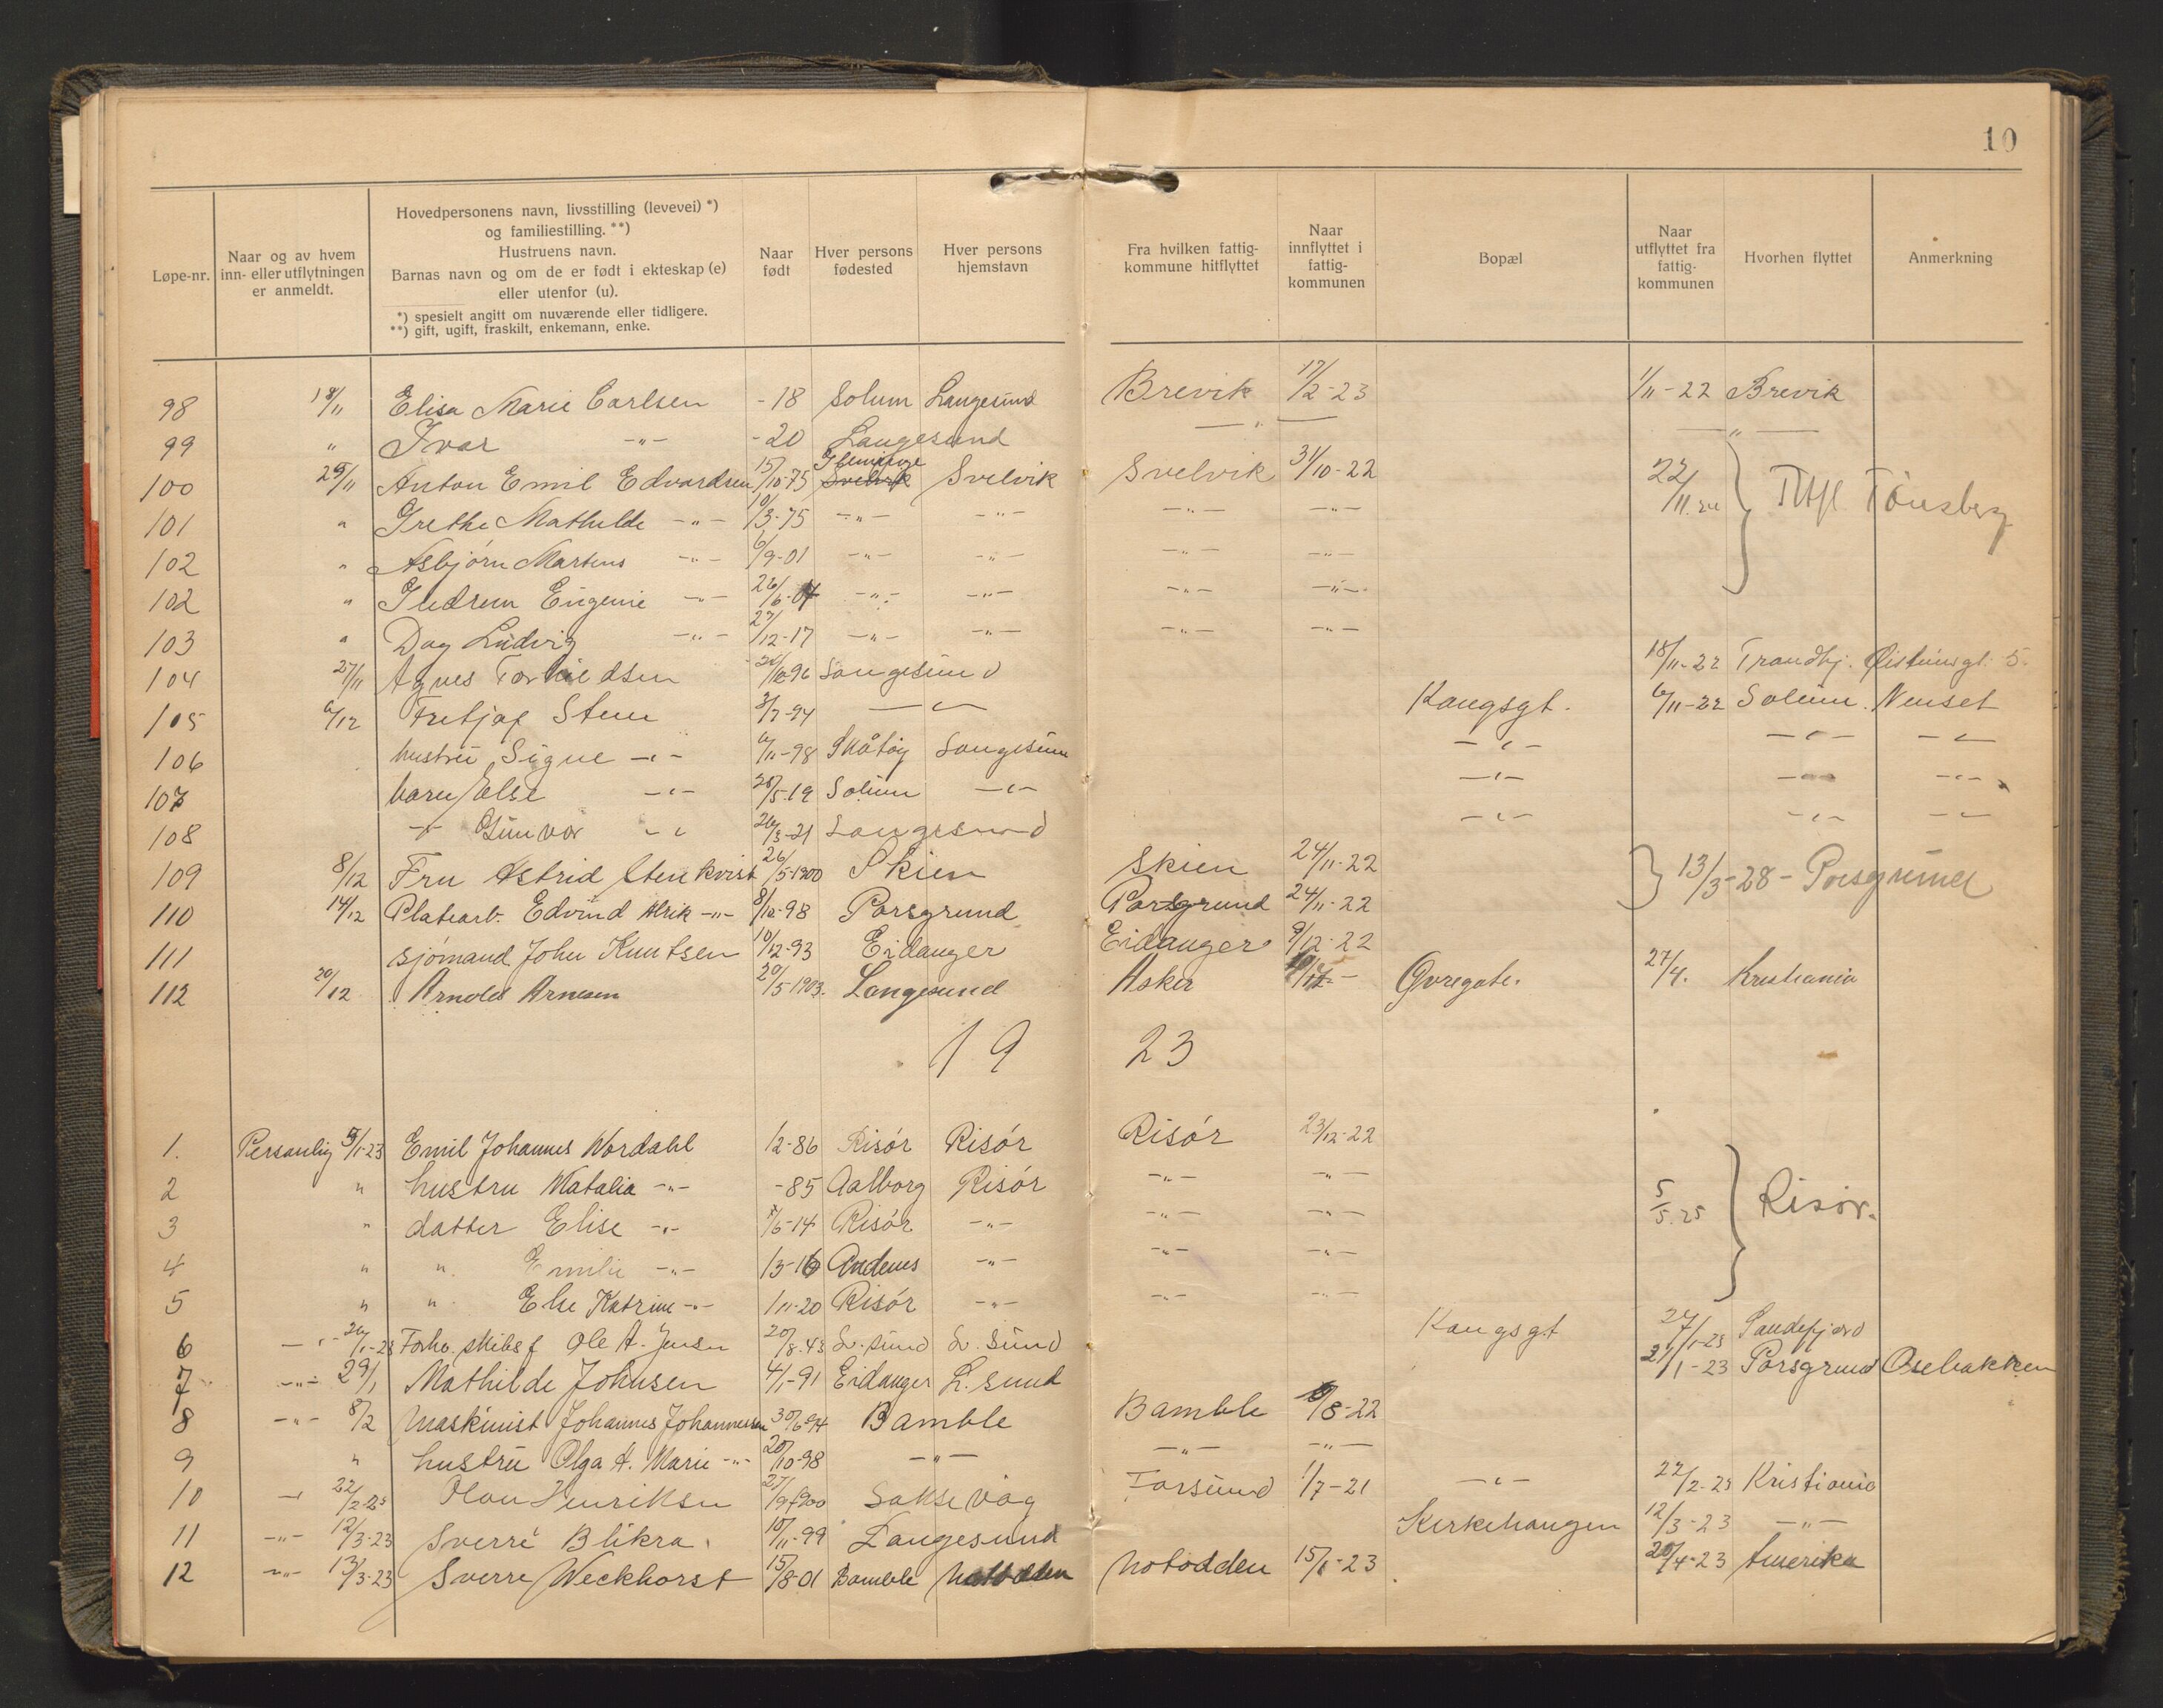 10
Løpe-nr. Naar og av hvem inn- eller utflytningen er anmeldt. Hovedpersonens navn, livsstilling (levevei) *) og familiestilling. **) Hustruens navn. Barnas navn og om de er født i ekteskap (e) eller utenfor (u). *) spesielt angitt om nuværende eller tidligere. **) gift, ugift, fraskilt, enkemann, enke. Naar født Hver persons fødested Hver persons hjemstavn Fra hvilken fattig-kommune hitflyttet Naar innflyttet i fattig-kommunen Bopæl Naar utflyttet fra fattig-kommunen Hvorhen flyttet Anmerkning
98 18/11 Elisa Marie Carlsen -18 Solum Langesund Brevik 17/2-23 1/11-22 Brevik
99 " Ivar -"- -20 Langesund -"- -"-
100 25/11 Anton Emil Edvardsen 15/10-75 Svelvik Svelvik Svelvik 31/10-22 22/11 Tønsberg
101 " Grethe Mathilde -"- 10/3-75 -"- -"- -"- -"-
102 " Asbjørn Martens -"- 6/9-01 -"- -"- -"- -"-
102 " Eugenie -"- 26/6-07 -"- -"- -"- -"-
103 " Dag Ludvig -"- 27/12-17 -"- -"- -"- -"-
104 27/11 Agnes Torkildsen /10-96 Langesund 18/11-22 Trondhj. 5
105 6/12 Fritjof Steen 3/7-94 -"- Kongsgt. 6/11-22 Solum. Menset
106 hustru Signe -"- 6/11-98 Skåtøy Langesun -"- -"- -"-
107 barn Else -"- 20/5-19 Solum -"- -"- -"- -"-
108 -"- Gunvor -"- 26/3-21 Langesund -"- -"- -"-
109 8/12 Fru Astrid Stenkvist 26/5-1900 Skien Skien 24/11-22 13/3-28 - Porsgrund
110 14/12 Platearb. Edvind Alrik -"- 8/12-98 Porsgrund Porsgrund 24/11-22
111 sjømand John Knutsen 10/12-93 Eidanger Eidanger 9/12-22
112 20/12 Arnold Arnesen 20/5-1903. Langesund Asker Øvregate. 27/4. Kristiania
19 23
1. Personlig 5/1-23 Emil Johannes Wordahl 1/2-86 Risør Risør Risør 23/12-22
2 " hustru Natalia -"- -85 Aalborg Risør -"- -"- 5/5.25 Risør.
3 " datter Elise -"- 7/6-14 Risør -"- -"- -"-
4 " " Emilie -"- 13-16 Andenes -"- -"- -"-
5 " " Else Katrine -"- 1/11-20 Risør -"- -"- -"-
6 -"- 26/1-23 Forhv. skibsf Ole A. Jensen 20/8-43 L. sund L. sund Kongsgt 27/1-23 Sandefjord
7 -"- 29/1 Mathilde Johnsen 4/1-91 Eidanger L. sund 21/1-23 Porsgrund Osebakken
8 -"- 8/2 Maskinist Johannes Johannessen 30/6-94 Bamble Bamble /8-22
9 " hustru Olga A. Marie -"- 20/10-98 -"- -"- -"-
10 -"- 22/2-23 Olav Henriksen 27/9-1900 Saksevåg Farsund 1/7-21 -"- 22/2-23 Kristiania
11 -"- 12/3-23 Sverre Blikra. 10/11-99 Langesund Kirkehaugen 12/3-23 -"-
12 -"- 13/3-23 Sverre Weckhorst 15/8-01 Bamble Notodden Notodden 15/1-23 20/4-23 Amerika